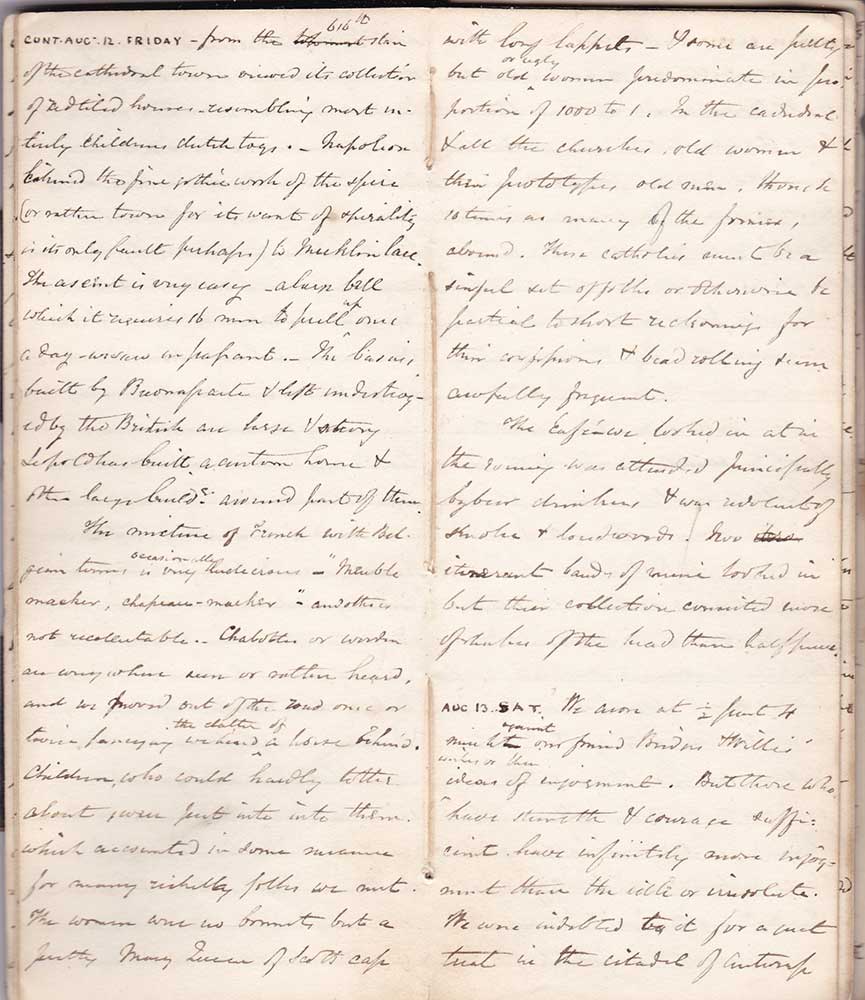 CONT. AUG. 12. FRIDAY - from the 616th stair
of the cathedral tower viewed its collection
of red tiled houses - resembling most in-
tirely childrens dutch toys. - Napoleon
likened the fine gothic work of the spire
(or rather tower for its want of spirality
is its only fault perhaps) to Mecklin lace.
The ascent is very easy - a large bell
which it requires 16 men to pull up once
a day - we saw in passant. - The basins
built by Buonaparte & left undestroy-
ed by the British are large & strong
Leopold has built a custom house &
other large builds. around part of them.
The mixture of French with Bel-
gian terms occasionally is very ludicrous - "Meuble
macker, chapeau-macker" - and others
not recolectable. - Chabottes or wooden
are every where seen or rather heard,
and we moved out of the road once or
twice fancying we heard the clatter of a horse behind.
Children, who could hardly totter
about, were put into into them.
which accounted in some measure
for many ricketty folks we met.
The women wear no bonnets but a
pretty Mary Queen of Scots cap
with long lappets - & some are pretty
but old or ugly women predominate in pro
portion of 1000 to 1. In the cathedral
& all the churches old women &
their prototypes old men, though
10 times as many of the former,
abound. These catholics must be a
sinful set of folks or otherwise be
partial to short reckonings for
their confessions & bead rolling seem
awfully frequent.
The Café we looked in at in
the evening was attended principally
by beer drinkers & was redolent of
smoke & loud words. Two
itinerant bands of music looked in
but their collection consisted more
of shakes of the head than halfpence.
AUG 13. SAT. We arose at ½ past 4
much against our friend Bridens & Willis'
wishes or their
ideas of enjoyment. But those who
have strength & courage suffi-
cient have infinitely more enjoy-
ment than the idle or irresolute.
We were indebted to it for a great
treat in the citadel of Antwerp